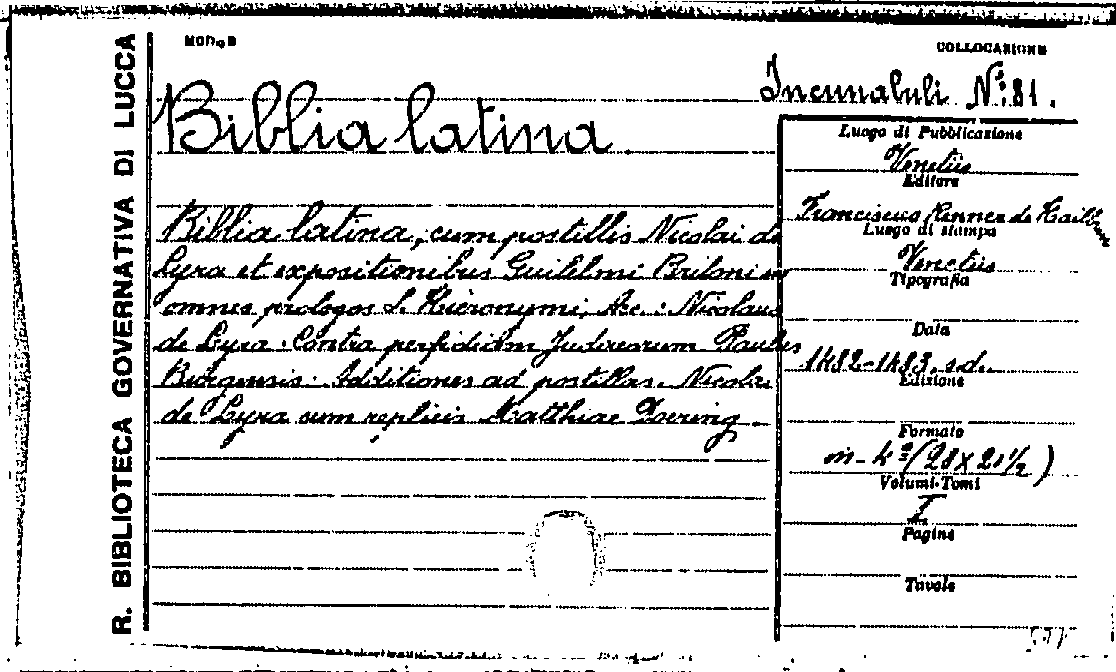 R. BIBLIOTECA GOVERNATIVA DI LUCCA
MOD. B
COLLOCAZIONE
Incunabuli N.: 81.
Biblia latina
Biblia latina, cum postillis Nicolai de
Lyra et expositionibus Guilelmi Britonis in
omnes prologos S. Hieronymi, Acc.: Nicolaus
de Lyra. Contra perfidiam Judaeorum Paulus
Burgensis. Additiones ad postillas. Nicolai
de Lyra cum replicis Matthiae Doering.
Luogo di Pubblicazione
Venetiis
Editore
Franciscus Renner de Hailbrun
Luogo di stampa
Venetiis
Tipografia
Data
1482-1483, s.d.
Edizione
Formato
in-4° (28 X 21 1/2)
Volumi-Tomi
I
Pagine
Tavole